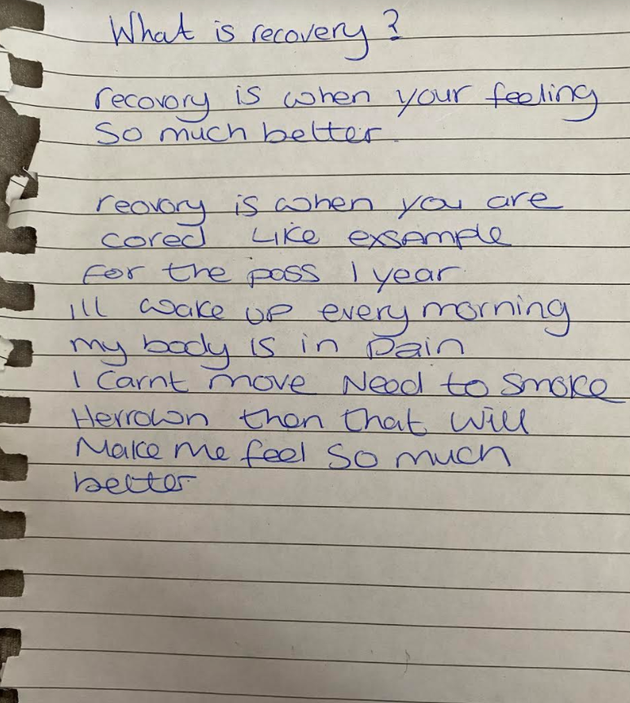 What is recovery?
recovory is when your feeling
So much better
reovory is when you are
cored Like exsample
for the pass 1 year
ill wake up every morning
my body is in Pain
I Carnt move Need to smoke
Herrown then that will
Make me feel so much
better